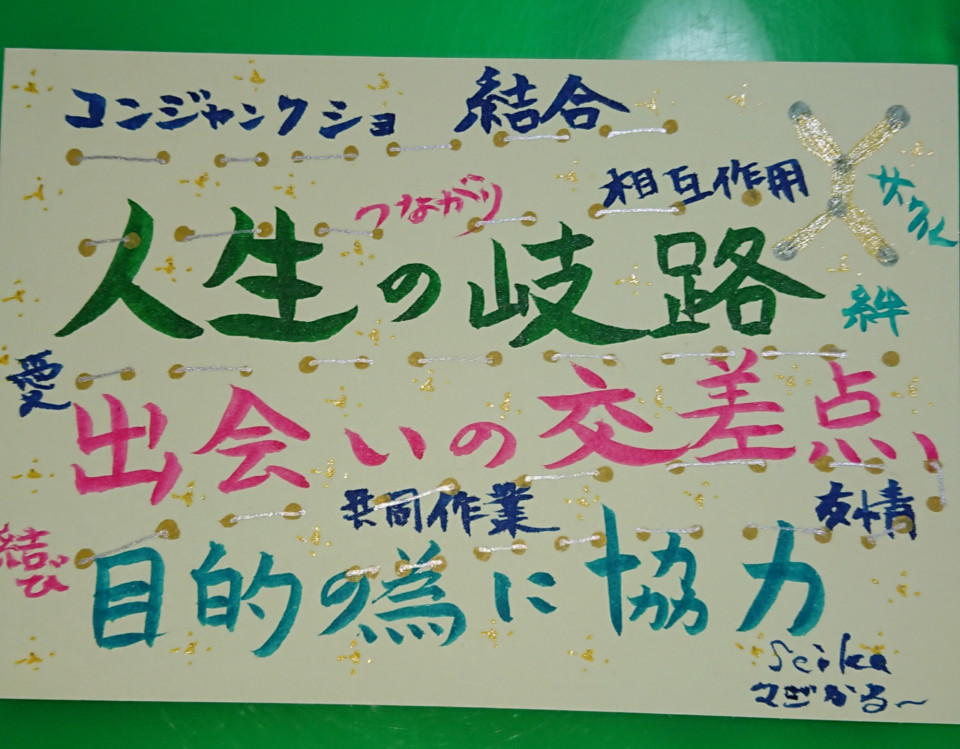 コンジャンクショ 結合
つながり 相互作用
サクル
人生の岐路
絆
愛
出会いの交差点、
共同作業 友情
結び
目的の為に協力
Seika
マジかる～